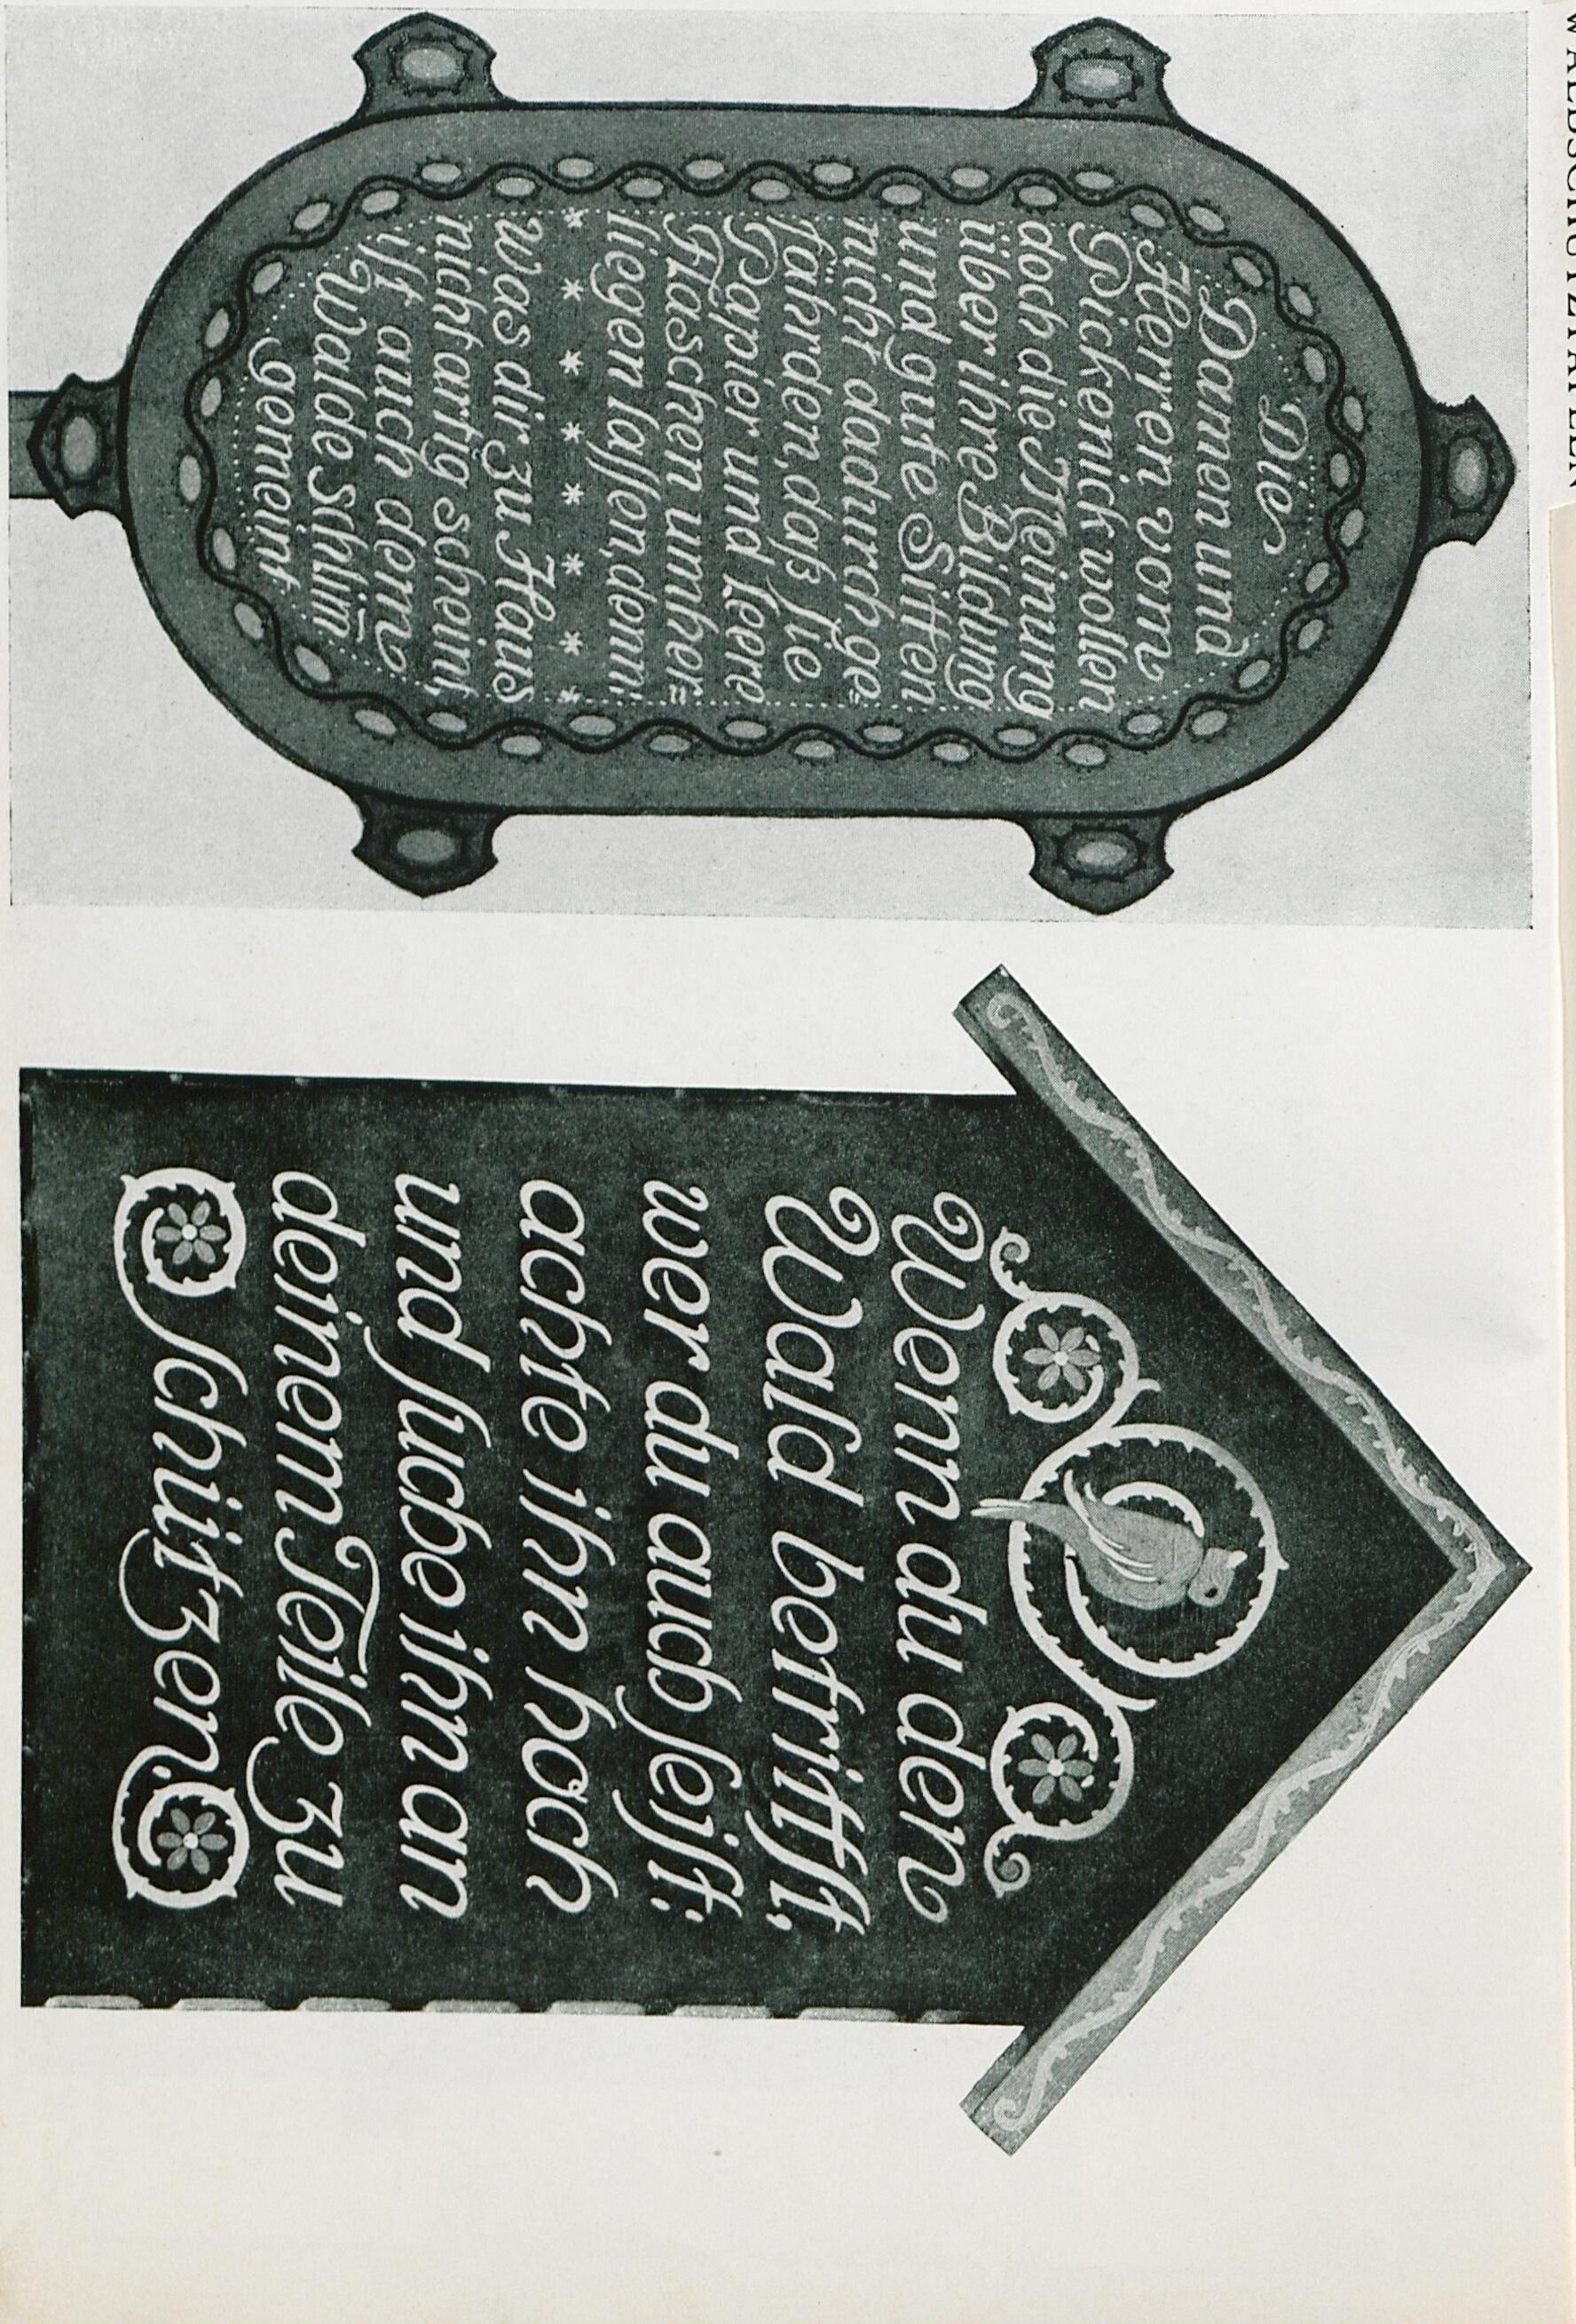 WALDSCHUTZTAFELN
Die
Damen und
Herren vom
Pickenick wollen
doch die Meinung
über ihre Bildung
und gute Sitten
nicht dadurch ge=
fährden, daß ſie
Papier und leere
Flaschen umher=
liegen laſſen, denn:
* * * * * * * *
Was dir zu Haus
nicht artig scheint,
iſt auch dem
Walde schlim̅
gemeint
Wenn du den
Wald betrittſt,
wer du auch ſeiſt:
achte ihn hoch
und ſuche ihn an
deinem Teile zu
ſchützen.